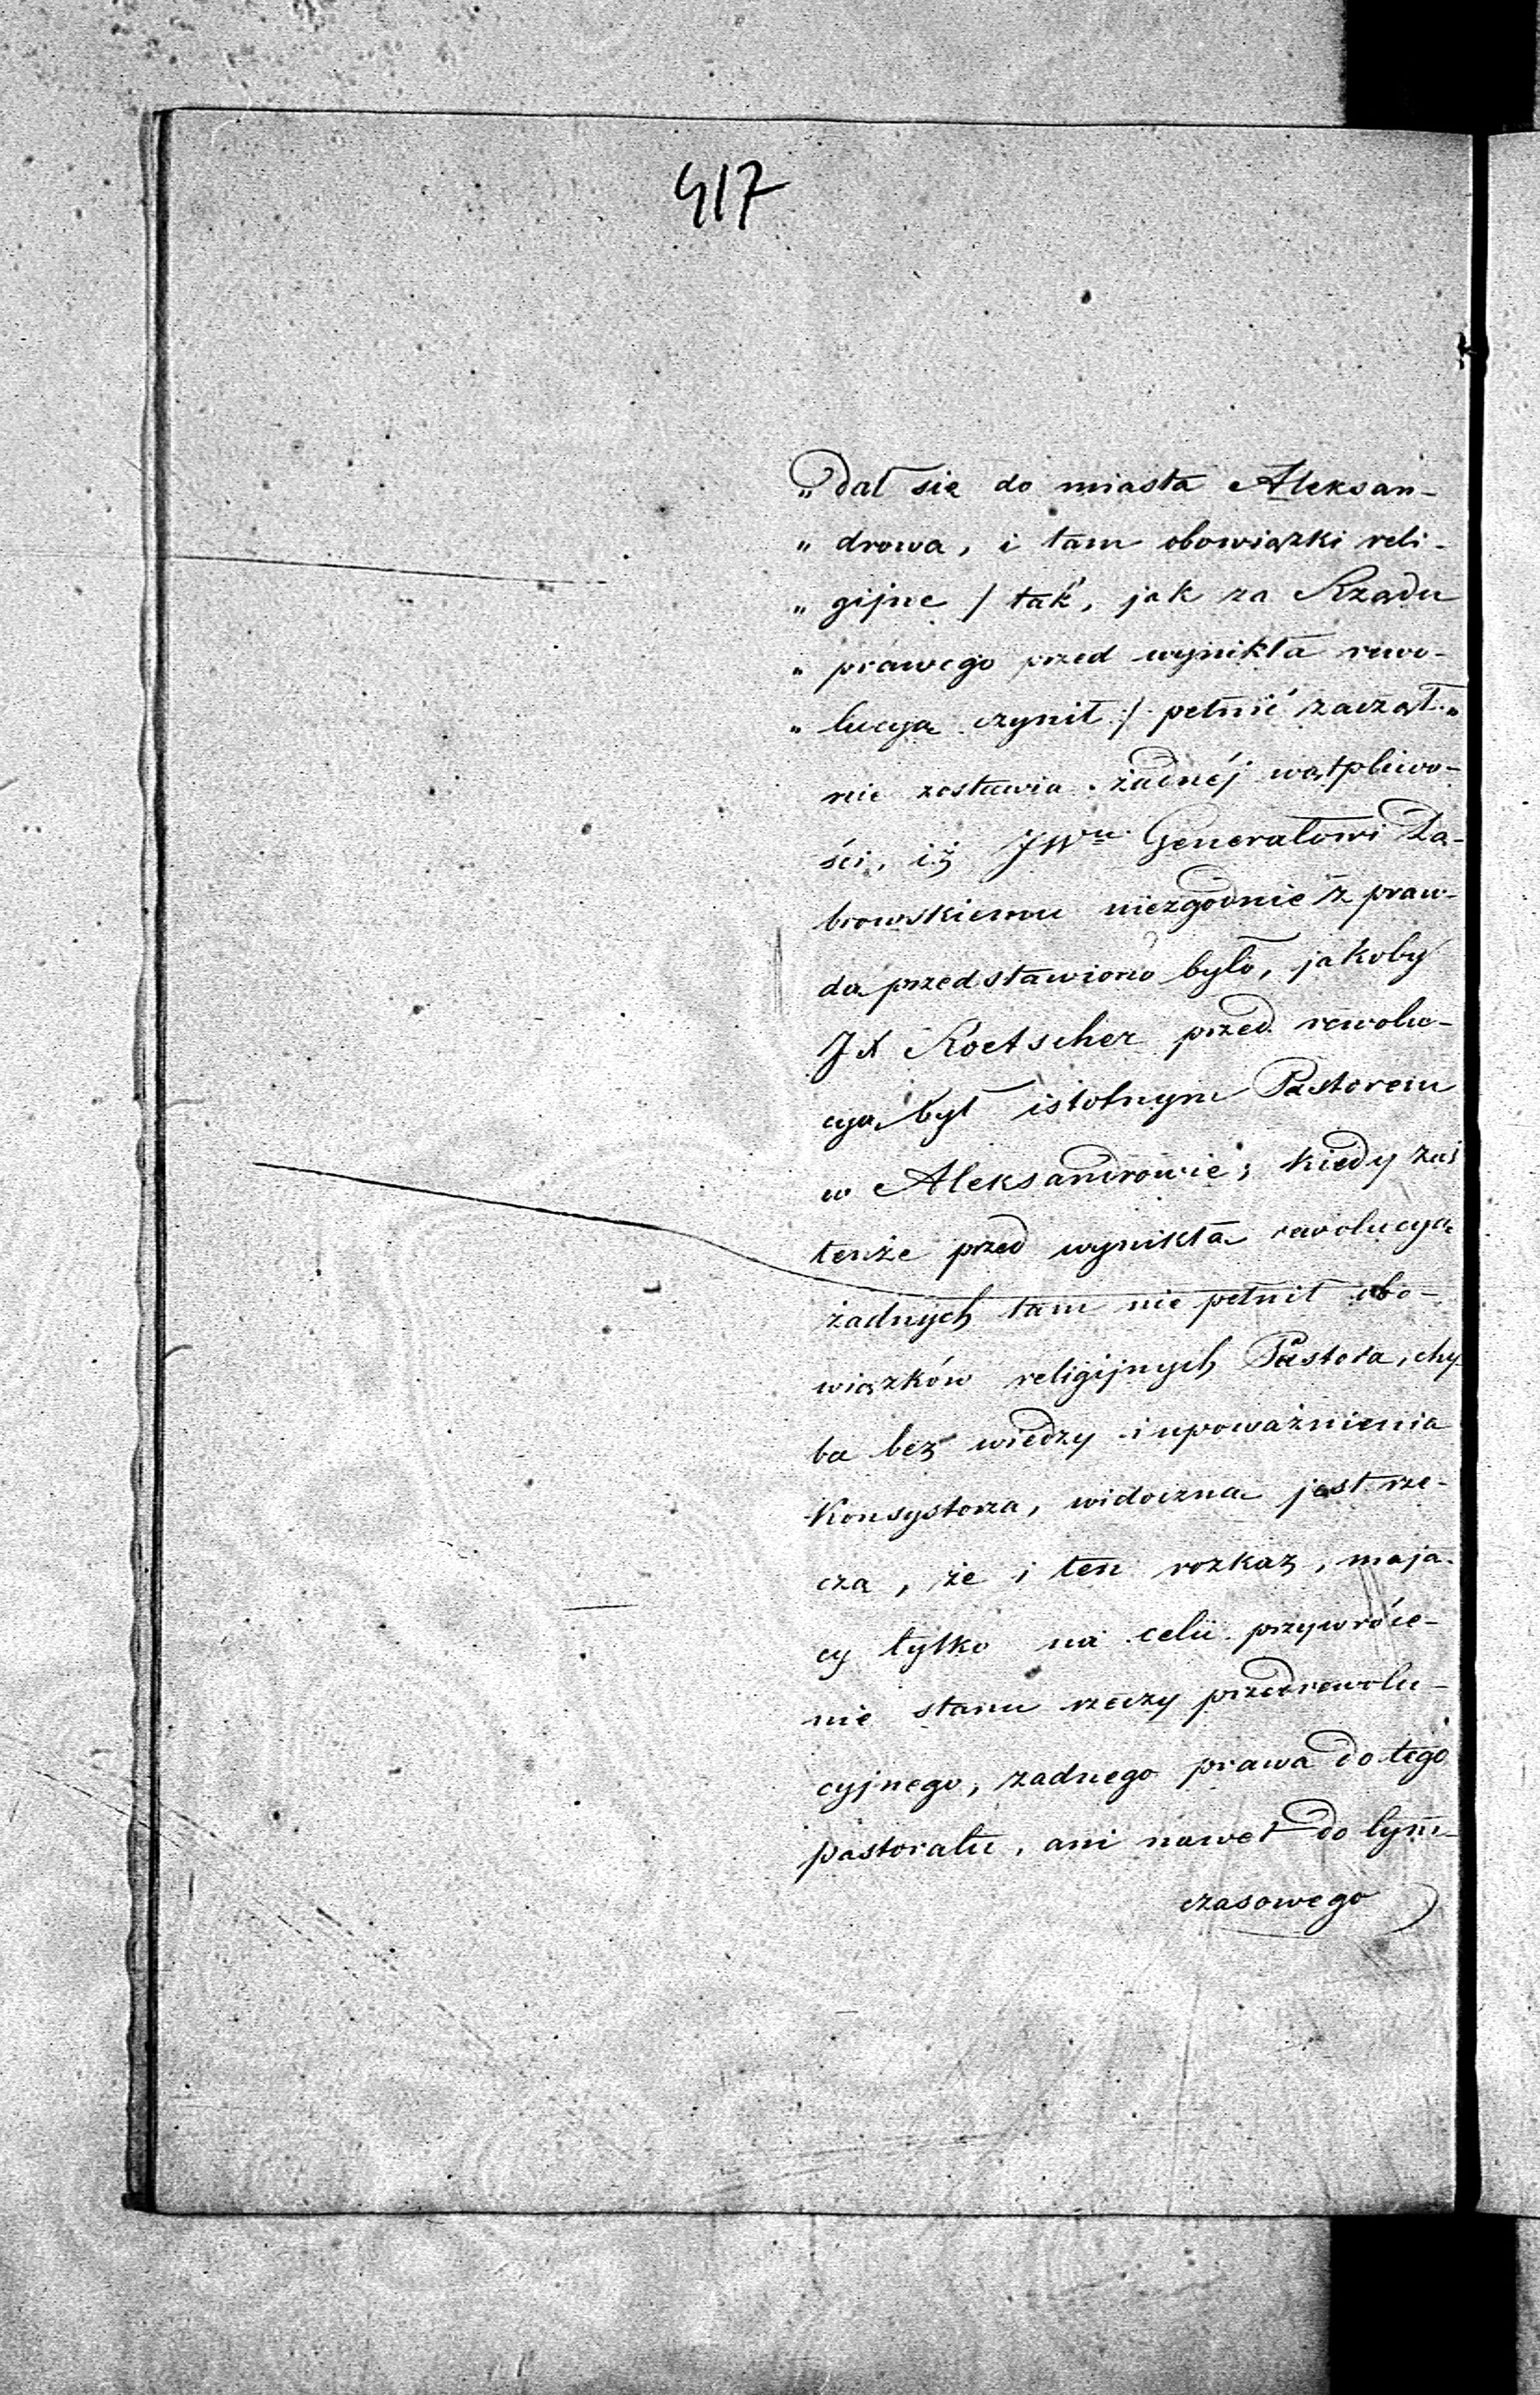 417
„dał się do miasta Aleksan-
„ drowa, i tam obowiązki reli-
„ gijne / tak, jak za Rządu
„ prawego przed wynikłą rewo-
„ lucyą czynił / pełnić zaczął."
nie zostawia żadnéj wątpliwo-
ści, iż JWu Generałowi Dą-
browskiemu niezgodnie z praw-
dą przedstawiono było, jakoby
JX Koetscher przed rewolu-
cyą był istotnym Pastorem
w Aleksandrowie; kiedy zaś
tenże przed wynikłą rewolucyą
żadnych tam nie pełnił obo-
wiązków religijnych Pastora, chy
ba bez wiedzy i upoważnienia
Konsystorza, widoczną jest rze-
czą, że i ten rozkaz, mają-
cy tylko na celu przywróce-
nie stanu rzeczy przedrewolu-
cyjnego, żadnego prawa do tego
pastoratu, ani nawet do tym-
czasowego